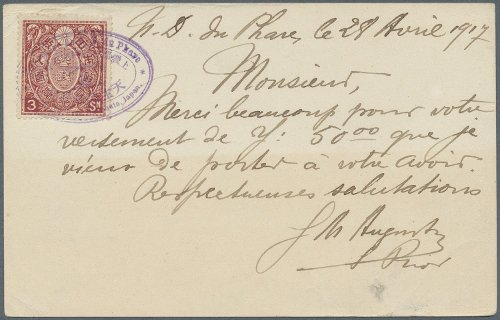 N. D. du Phare, le 28 Avril 1917
Monsieur,
Merci beaucoup pour votre
versement de Y. 50 00 que je
viens de porter à votre avoir.
Respectueuses salutations
Prior
3 Sn
Japan